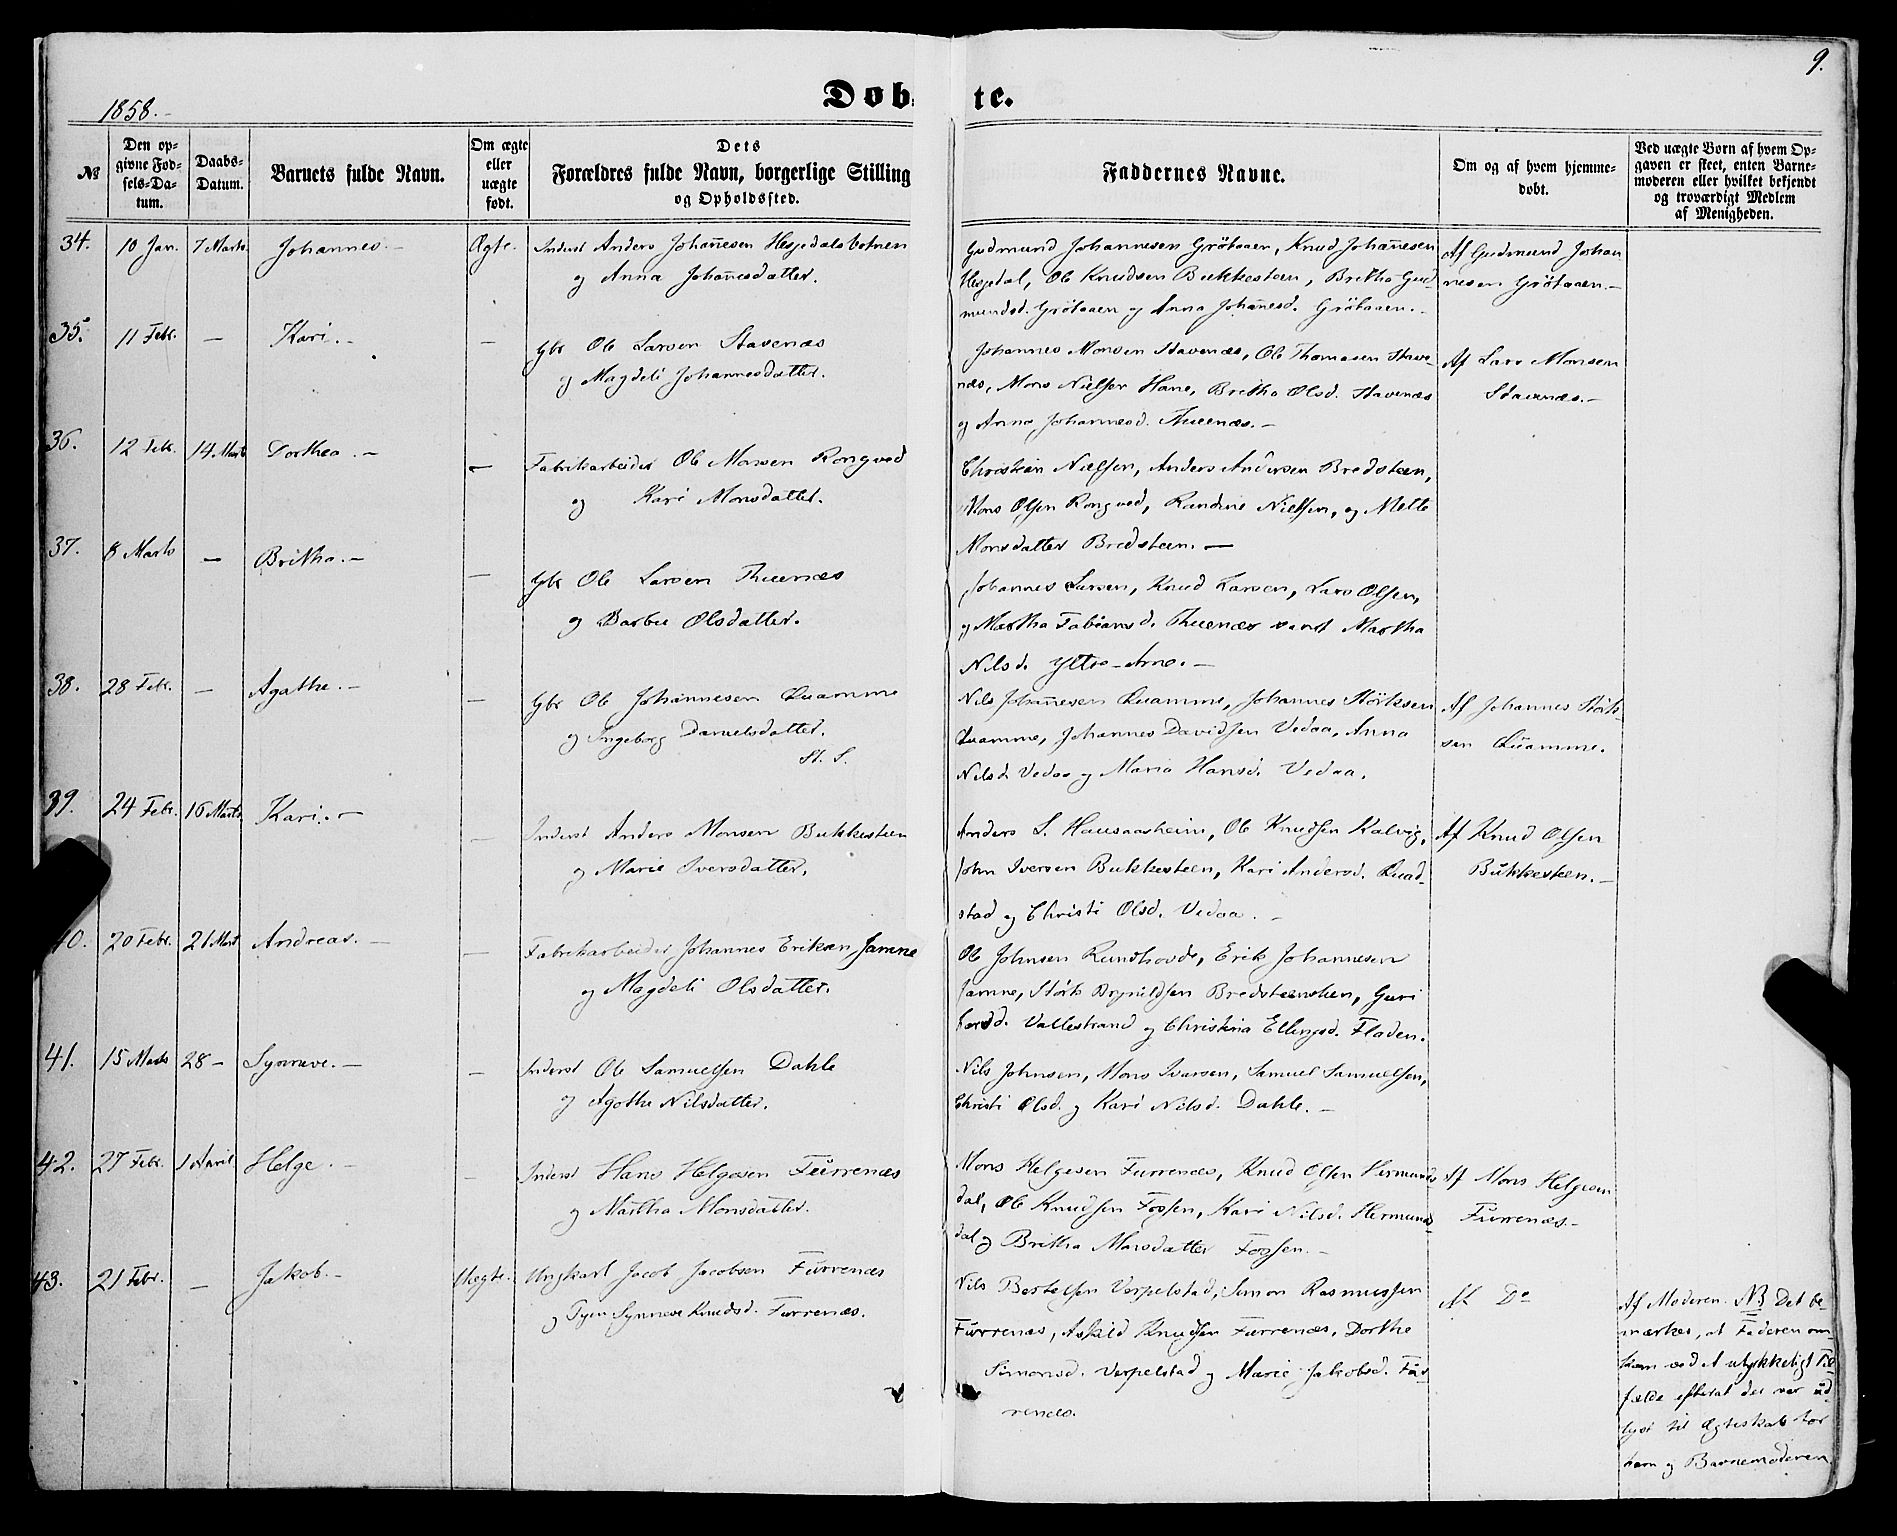 9.
1858.-
Døbte.
№
Den opgivne Fødsels-Datum.
Daabs-Datum.
Barnets fulde Navn.
Om ægte eller uægte født.
Dets Forældres fulde Navn, borgerlige Stilling og Opholdssted.
Faddernes Navne.
Om og af hvem hjemmedøbt.
Ved uægte Børn af hvem Opgaven er skeet, enten Barnemoderen eller hvilket bekjendt og troværdigt Medlem af Menigheden.
34. 10 Jan. 7 Marts. Johannes.- Ægte.
Inderst Anders Johannesen Hesjedalsbotnen
og Anna Johannesdatter.
Gudmund Johannesen Grötaaen, Knud Johannesen
Hesjedal, Ole Knudsen Bukkesteen, Britha Gud-
mundsd. Grötaaen og Anna Johannesd. Grötaaen.-
Af Gudmund Johan
nesen Grötaaen.-
35. 11 Febr. — Kari.- —
Gbr Ole Larsen Stavenæs
og Magdeli Johannesdatter.
Johannes Monsen Stavenæs, Ole Thomasen Stave-
næs, Mons Nielsen Hane, Britha Olsd. Stavenæs
og Anna Johannesd. Thuenæs.-
Af Lars Monsen
Stavenæs.-
36. 12 Febr. 14 Marts Dorthea.- —
Fabrikarbeider Ole Monsen Rongved
og Kari Monsdatter.
Christian Nielsen, Anders Andersen Bredsteen,
Mons Olsen Rongved, Randine Nielsen, og Mette
Monsdatter Bredsteen.—
37. 8 Marts — Britha.- —
Gbr Ole Larsen Thuenæs
og Barbra Olsdatter.
Johannes Larsen, Knud Larsen, Lars Olsen,
og Martha Fabiansd. Thuenæs samt Martha
Nilsd. Yttre-Arne.-
38. 28 Febr. — Agathe.- —
Gbr Ole Johannesen Quamme
og Ingeborg Danielsdatter.
St. S.
Nils Johannesen Quamme, Johannes Störksen
Quamme, Johannes Davidsen Vedaa, Anna
Nilsd. Vedaa og Maria Hansd. Vedaa.
Af Johannes Störk-
sen Quamme.
39. 24 Febr. 16 Marts. Kari.- —
Inderst Anders Monsen Bukkesteen
og Marie Iversdatter.
Anders S. Hausaasheim, Ole Knudsen Kalvig,
John Iversen Bukkesteen, Kari Andersd. Quad-
stad og Christi Olsd. Vedaa.-
Af Knud Olsen
Bukkesteen.-
40. 20 Febr. 21 Mart Andreas.- —
Fabrikarbeider Johannes Eriksen Jamne
og Magdeli Olsdatter.
Ole Johnsen Rundhovde, Erik Johannesen
Jamne, Störk Brynildsen Bredsteensken, Guri
Larsd. Vallestrand og Christina Ellingsd. Fladen.
41. 15 Marts 28 - Synneve.- —
Inderst Ole Samuelsen Dahle
og Agothe Nilsdatter.
Nils Johnsen, Mons Ivarsen, Samuel Samuelsen,
Christi Olsd. og Kari Nilsd. Dahle.-
42. 27 Febr. 1 April Helge.- —
Inderst Hans Helgesen Furrenæs
og Martha Monsdatter.
Mons Helgesen Furrenæs, Knud Olsen Hermunds
dal, Ole Knudsen Fossen, Kari Nilsd. Hermund
dal og Britha Monsdatter Fossen.-
Af Mons Helgesen
Furrenæs.-
43. 21 Febr. — Jakob.- Uægte.
Ungkarl Jacob Jacobsen Furrenæs
og Pigen Synneve Knudsd. Furrenæs.
Nils Bertelsen Verpelstad, Simon Rasmussen
Furrenæs, Askild Knudsen Furrenæs, Dorthe
Simonsd. Verpelstad og Marie Jakobsd. Fur-
renæs.
Af Do
Af Moderen. NB Det be-
mærkes, at Faderen om-
kom ved et ulykkeligt Til-
fælde efterat der var ud-
lyst til Ægteskab for
ham og Barnemoderen